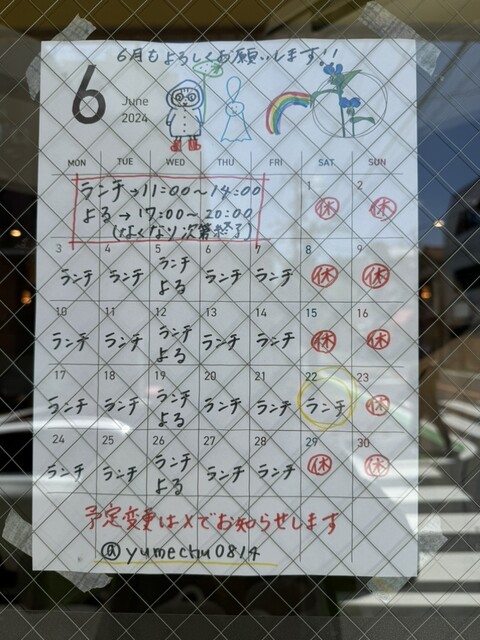 6月もよろしくお願いします!!
6
June
2024
MON TUE WED THU FRI SAT SUN
ランチ→11:00〜14:00
よる→17:00〜20:00
(なくなり次第終了)
1 2
休 休
3 4 5 6 7 8 9
ランチ ランチ ランチ ランチ ランチ 休 休
よる
10 11 12 13 14 15 16
ランチ ランチ ランチ ランチ ランチ 休 休
よる
17 18 19 20 21 22 23
ランチ ランチ ランチ ランチ ランチ ランチ 休
よる
24 25 26 27 28 29 30
ランチ ランチ ランチ ランチ ランチ 休 休
よる
予定変更はXでお知らせします
@yumechu0814